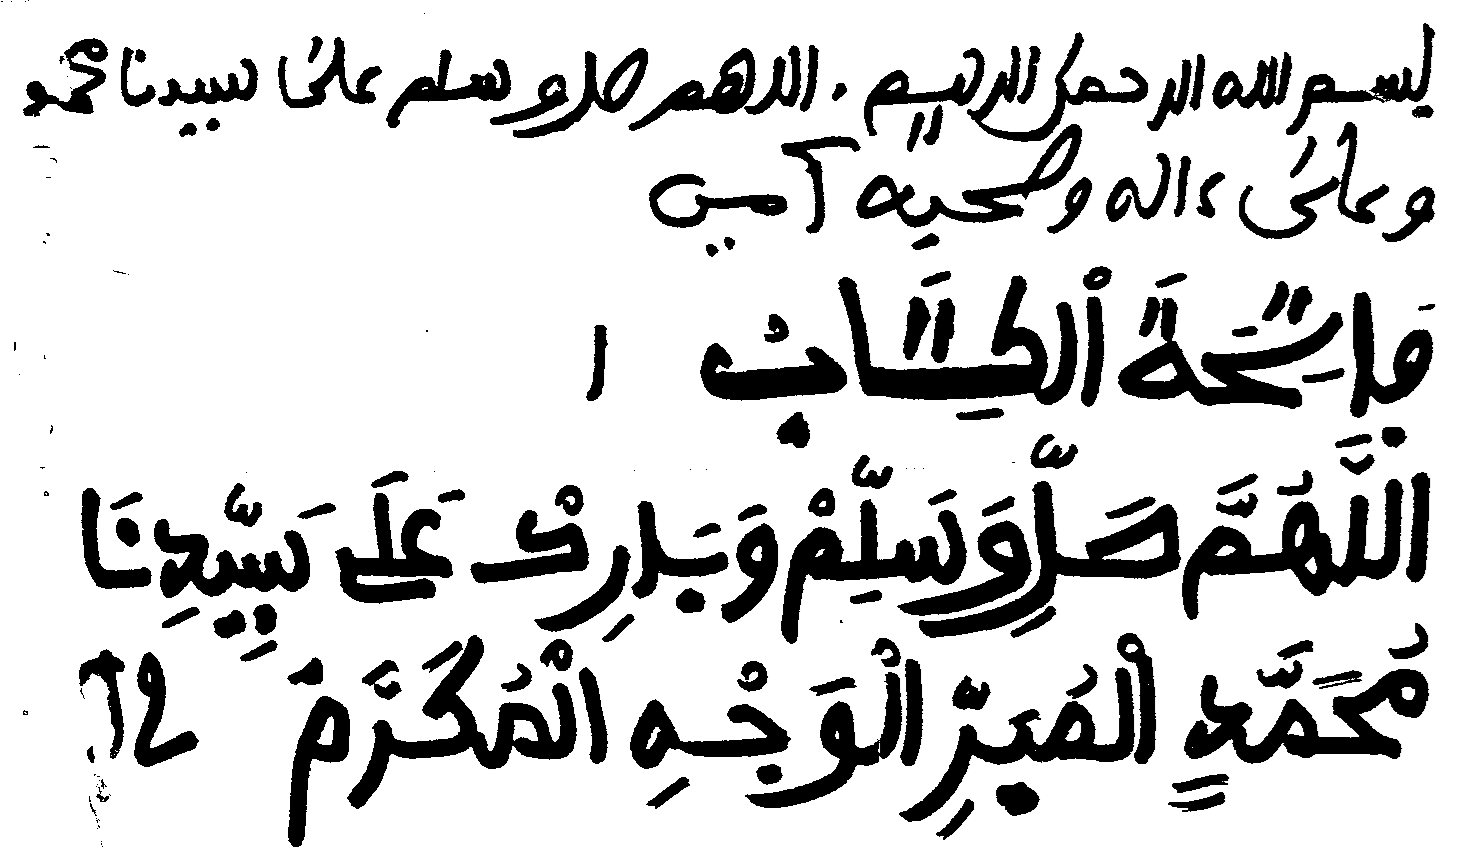 بسم الله الرحمن الرحيم . اللهم صل وسلم على سيدنا محمد
وعلى ءاله وصحبه آمين
فَاتِحَةَ ٱلْكِتَابْ ١
اللَّهُمَّ صَلِّ وَسَلِّمْ وَبَارِكْ عَلَى سَيِّدِنَا
مُحَمَّدٍ الْمُنِيرِ الْوَجْهِ الْمُكَرَّمْ